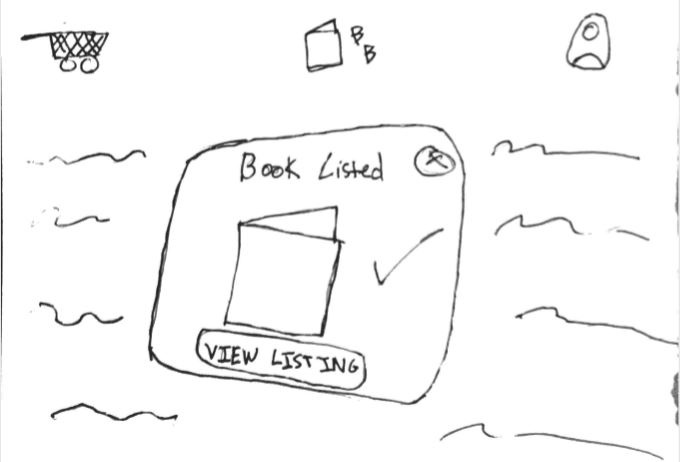 B
B
Book Listed
X
VIEW LISTING